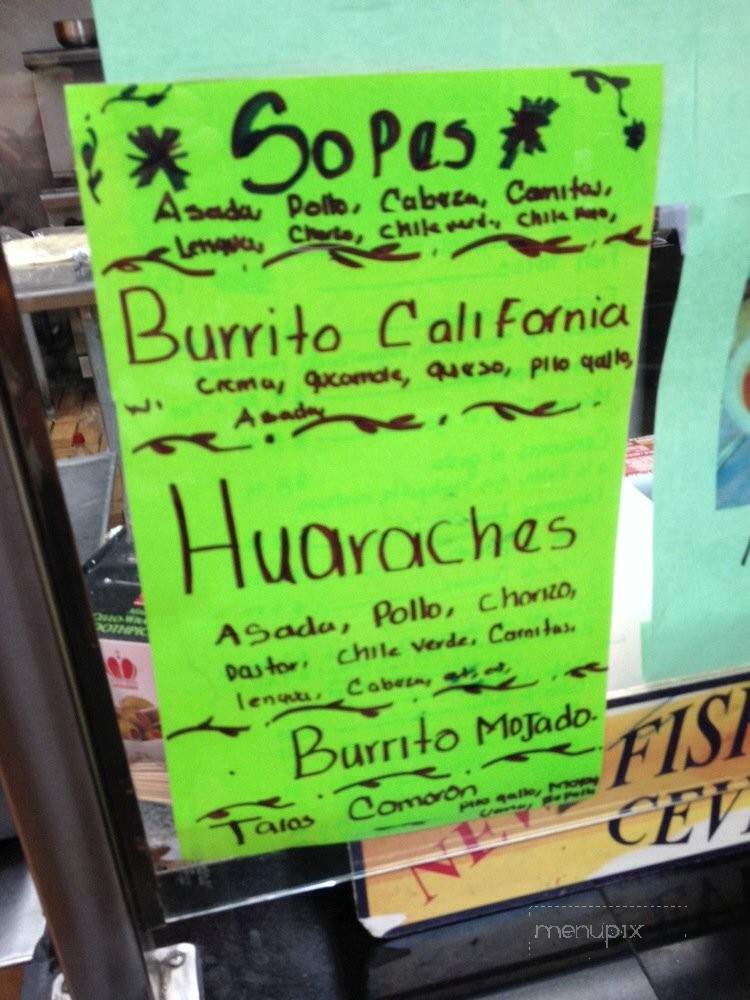 Sopes
Asada, Pollo, Cabeza, Carnitas,
Lengua, Chorizo, Chile verde, Chile Rojo,
Burrito California
w/ crema, guacamole, queso, pico gallo,
Asada
Huaraches
Asada, Pollo, Chorizo,
Pastor, Chile verde, Carnitas,
lengua, Cabeza, etc, etc,
Burrito Mojado.
Tacos Camarón
Pico gallo,
FISH
NEW
CEV
menupix